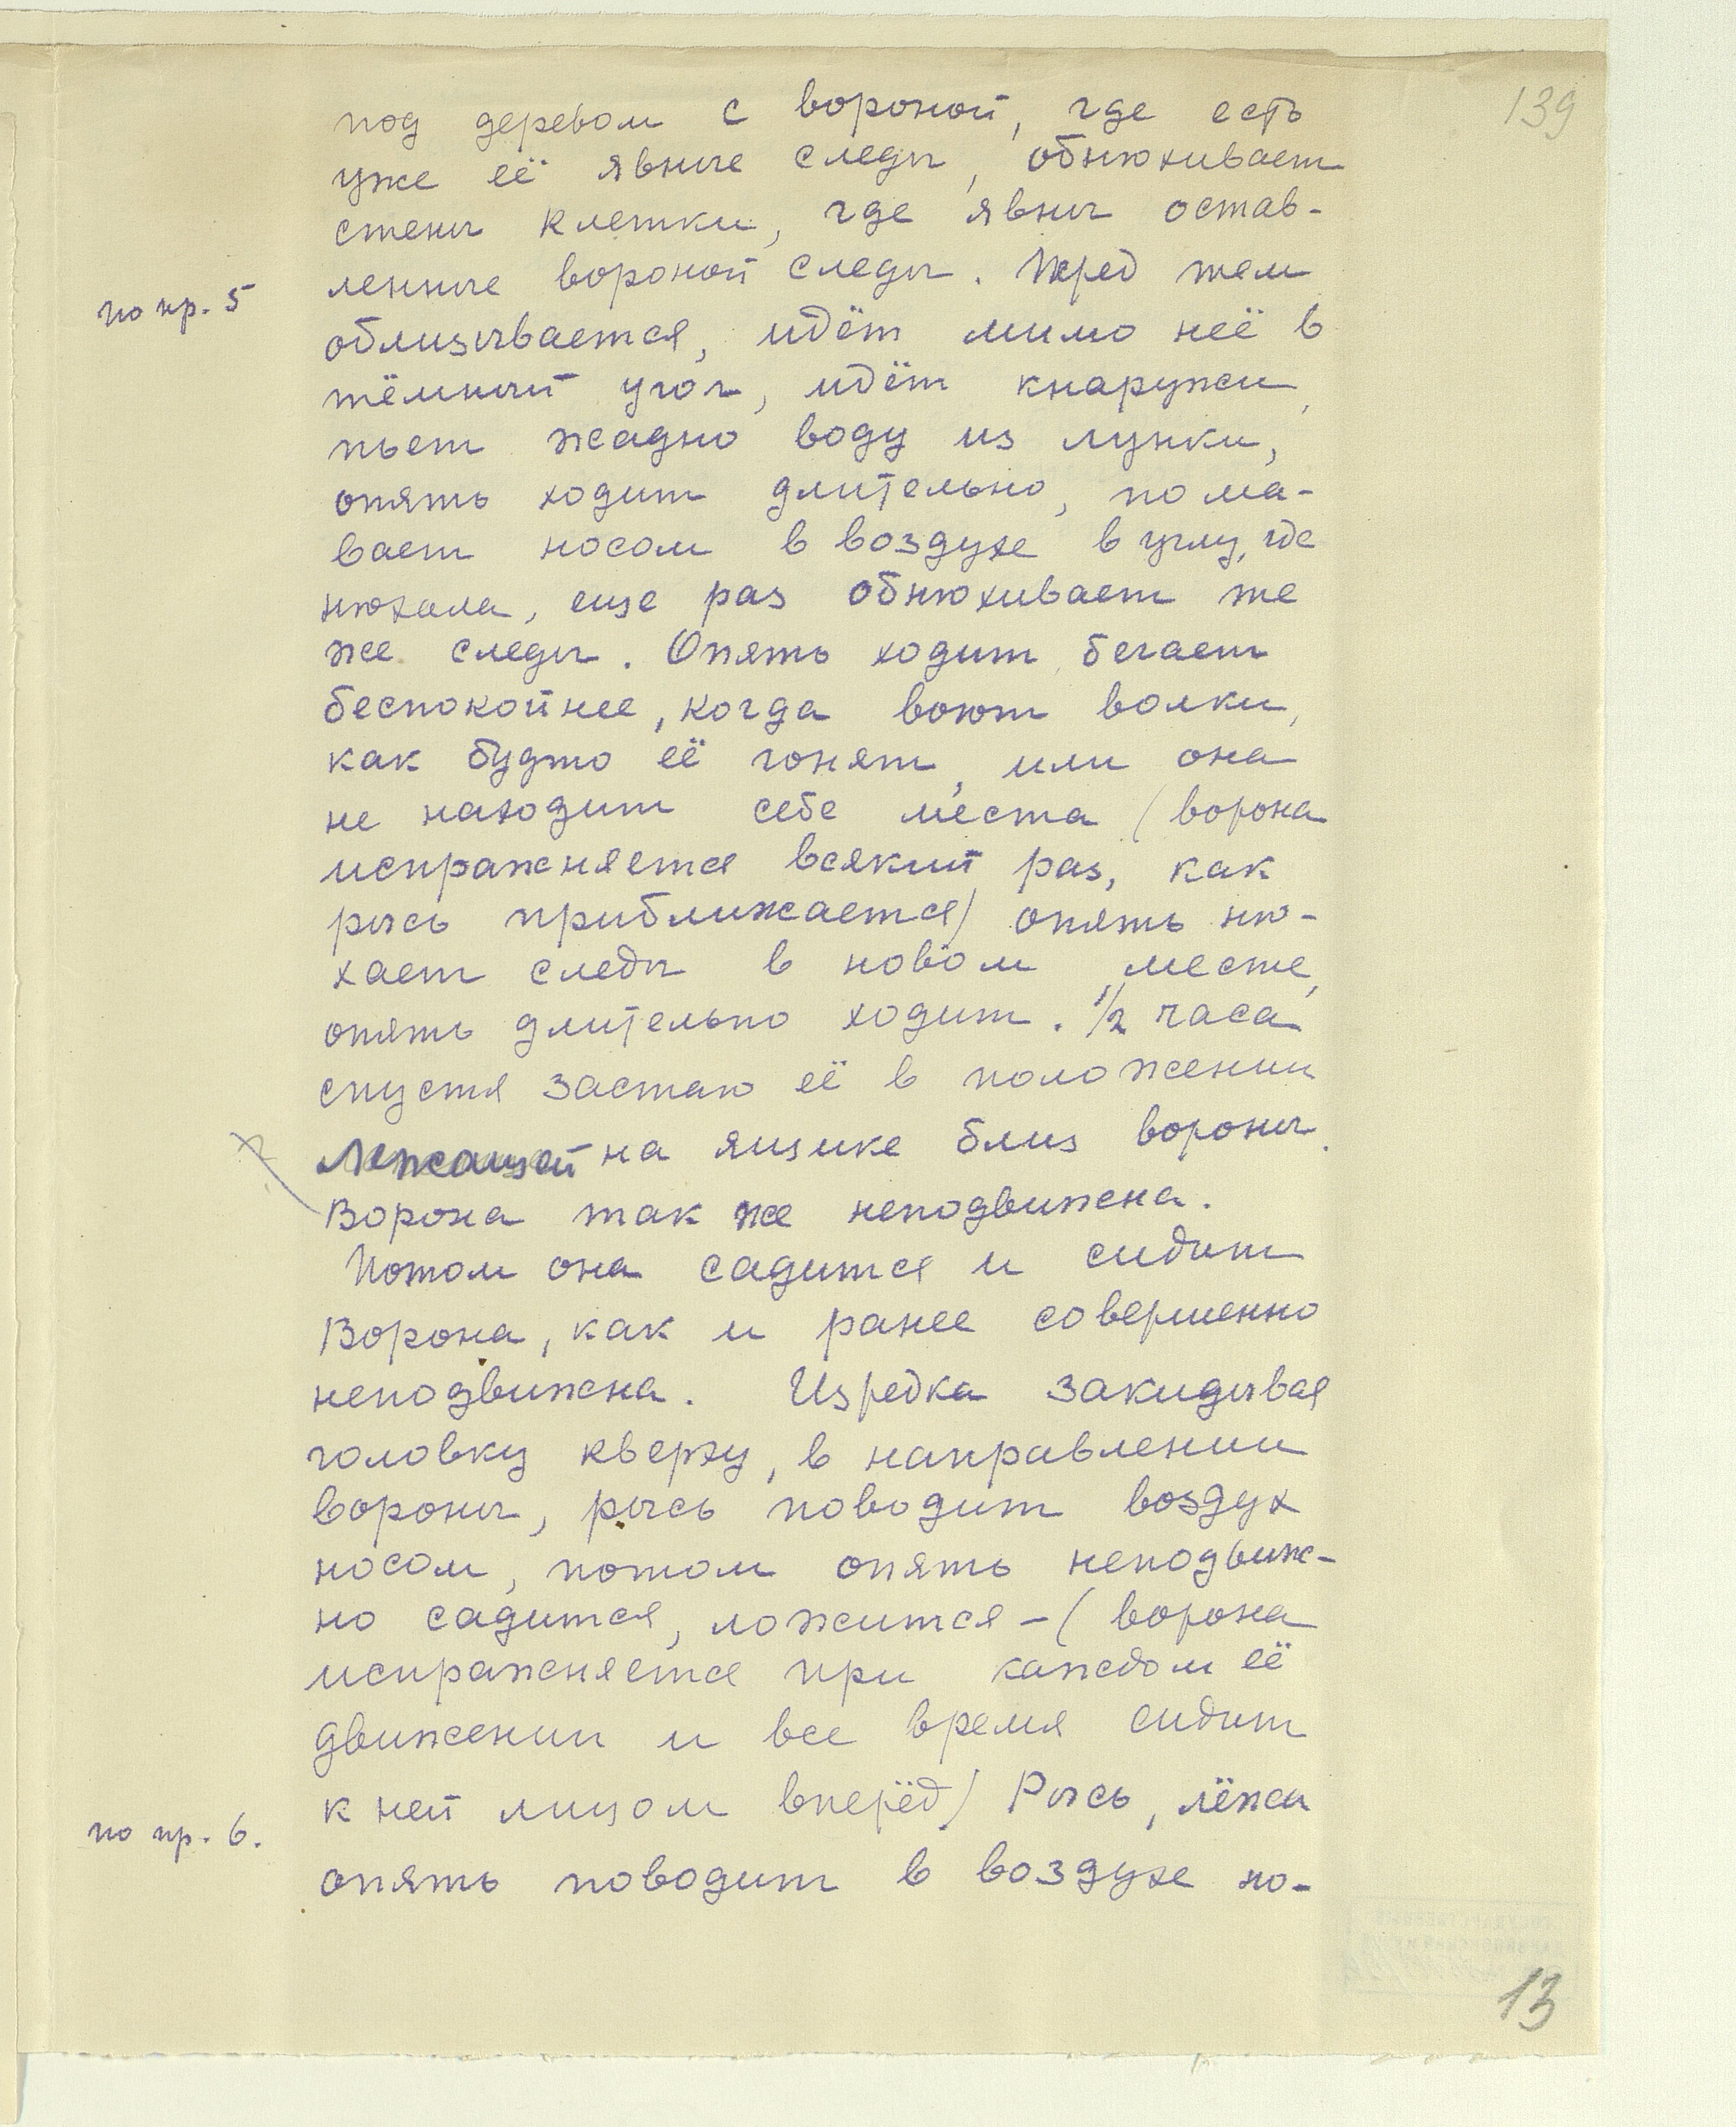 139
под деревом с вороной, где есть
уже её явные следы, обнюхивает
стены клетки, где явны остав-
ленные вороной следы. Перед тем
по пр. 5
облизывается, идёт мимо неё в
тёмный угол, идёт кнаружи,
пьет жадно воду из лунки,
опять ходит длительно, пома-
вает носом в воздухе в углу, где
нюхала, еще раз обнюхивает те
же следы. Опять ходит, бегает
беспокойнее, когда воют волки,
как будто её гонят, или она
не находит себе места (ворона
испражняется всякий раз, как
рысь приближается) опять ню-
хает следы в новом месте,
опять длительно ходит. 1/2 часа
спустя застаю её в положении
лежащей на ящике близ вороны.
Ворона так же неподвижна.
Потом она садится и сидит
Ворона, как и ранее совершенно
неподвижна. Изредка закидывая
головку кверху, в направлении
вороны, рысь поводит воздух
носом, потом опять неподвиж-
но садится, ложится - (ворона
испражняется при каждом её
движении и все время сидит
к ней лицом вперёд) Рысь, лёжа
по пр. 6.
опять поводит в воздухе но-
13